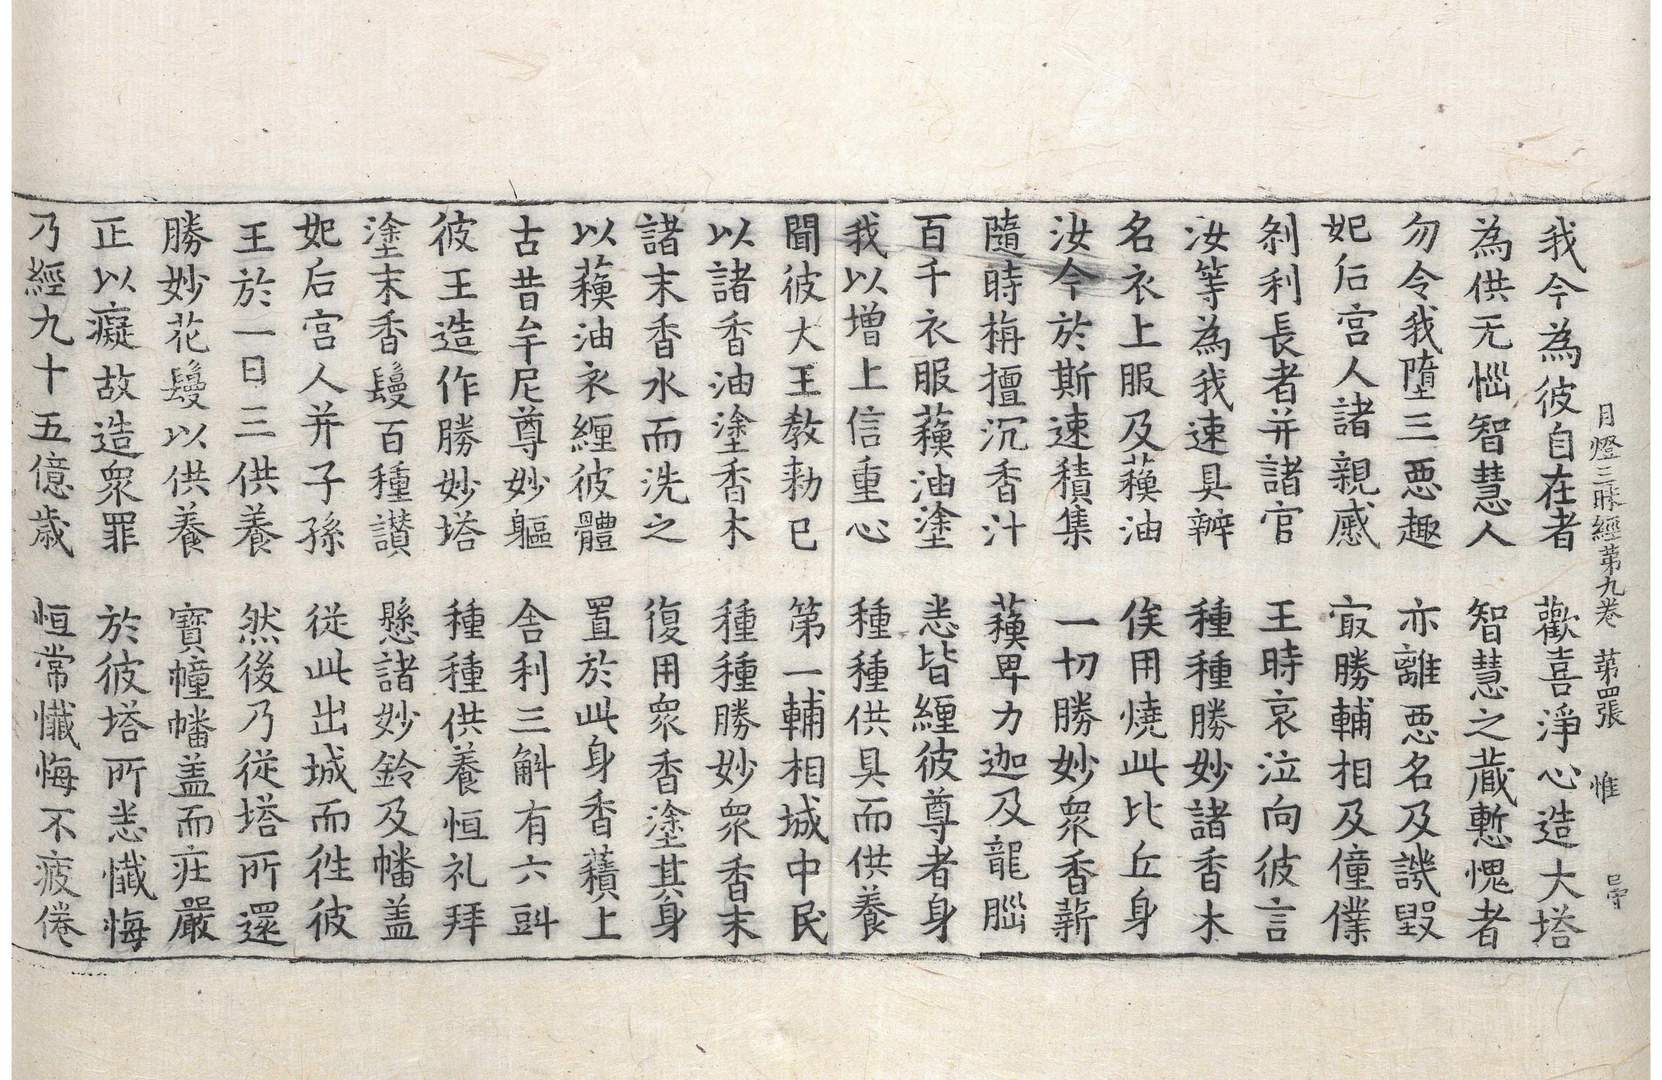 月燈三昧經第九卷 第四張 惟
我今為彼自在者 歡喜淨心造大塔
為供无惱智慧人 智慧之藏慙愧者
勿令我墮三惡趣 亦離惡名及譏毀
妃后宮人諸親慼 寂勝輔相及僮僕
刹利長者并諸官 王時哀泣向彼言
汝等為我速具辦 種種勝妙諸香木
名衣上服及蘓油 俟用燒此比丘身
汝今於斯速積集 一切勝妙眾香薪
隨時栴檀沉香汁 蘓畢力迦及龍腦
百千衣服蘓油塗 悉皆纏彼尊者身
我以增上信重心 種種供具而供養
聞彼大王教勑已 第一輔相城中民
以諸香油塗香木 種種勝妙眾香末
諸末香水而洗之 復用眾香塗其身
以蘓油衣纏彼體 置於此身香𧂐上
古昔牟尼尊妙軀 舍利三斛有六㪷
彼王造作勝妙塔 種種供養恒礼拜
塗末香鬘百種讃 懸諸妙鈴及幡盖
妃后宮人并子孫 從此出城而徃彼
王於一日三供養 然後乃從塔所還
勝妙花鬘以供養 寶幢幡盖而庄嚴
正以癡故造眾罪 於彼塔所悉懺悔
乃經九十五億歲 恒常懺悔不疲倦